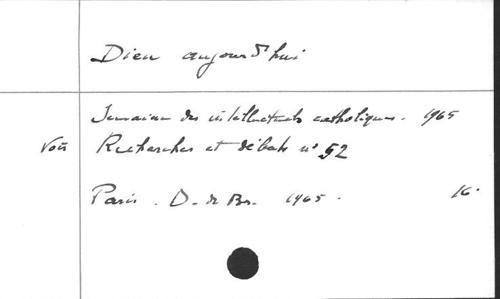 Dieu aujourd'hui
Semaine des intellectuels catholiques. 1965
Voir Recherches et débats n° 52
Paris. D. de Br. 1965. 16.